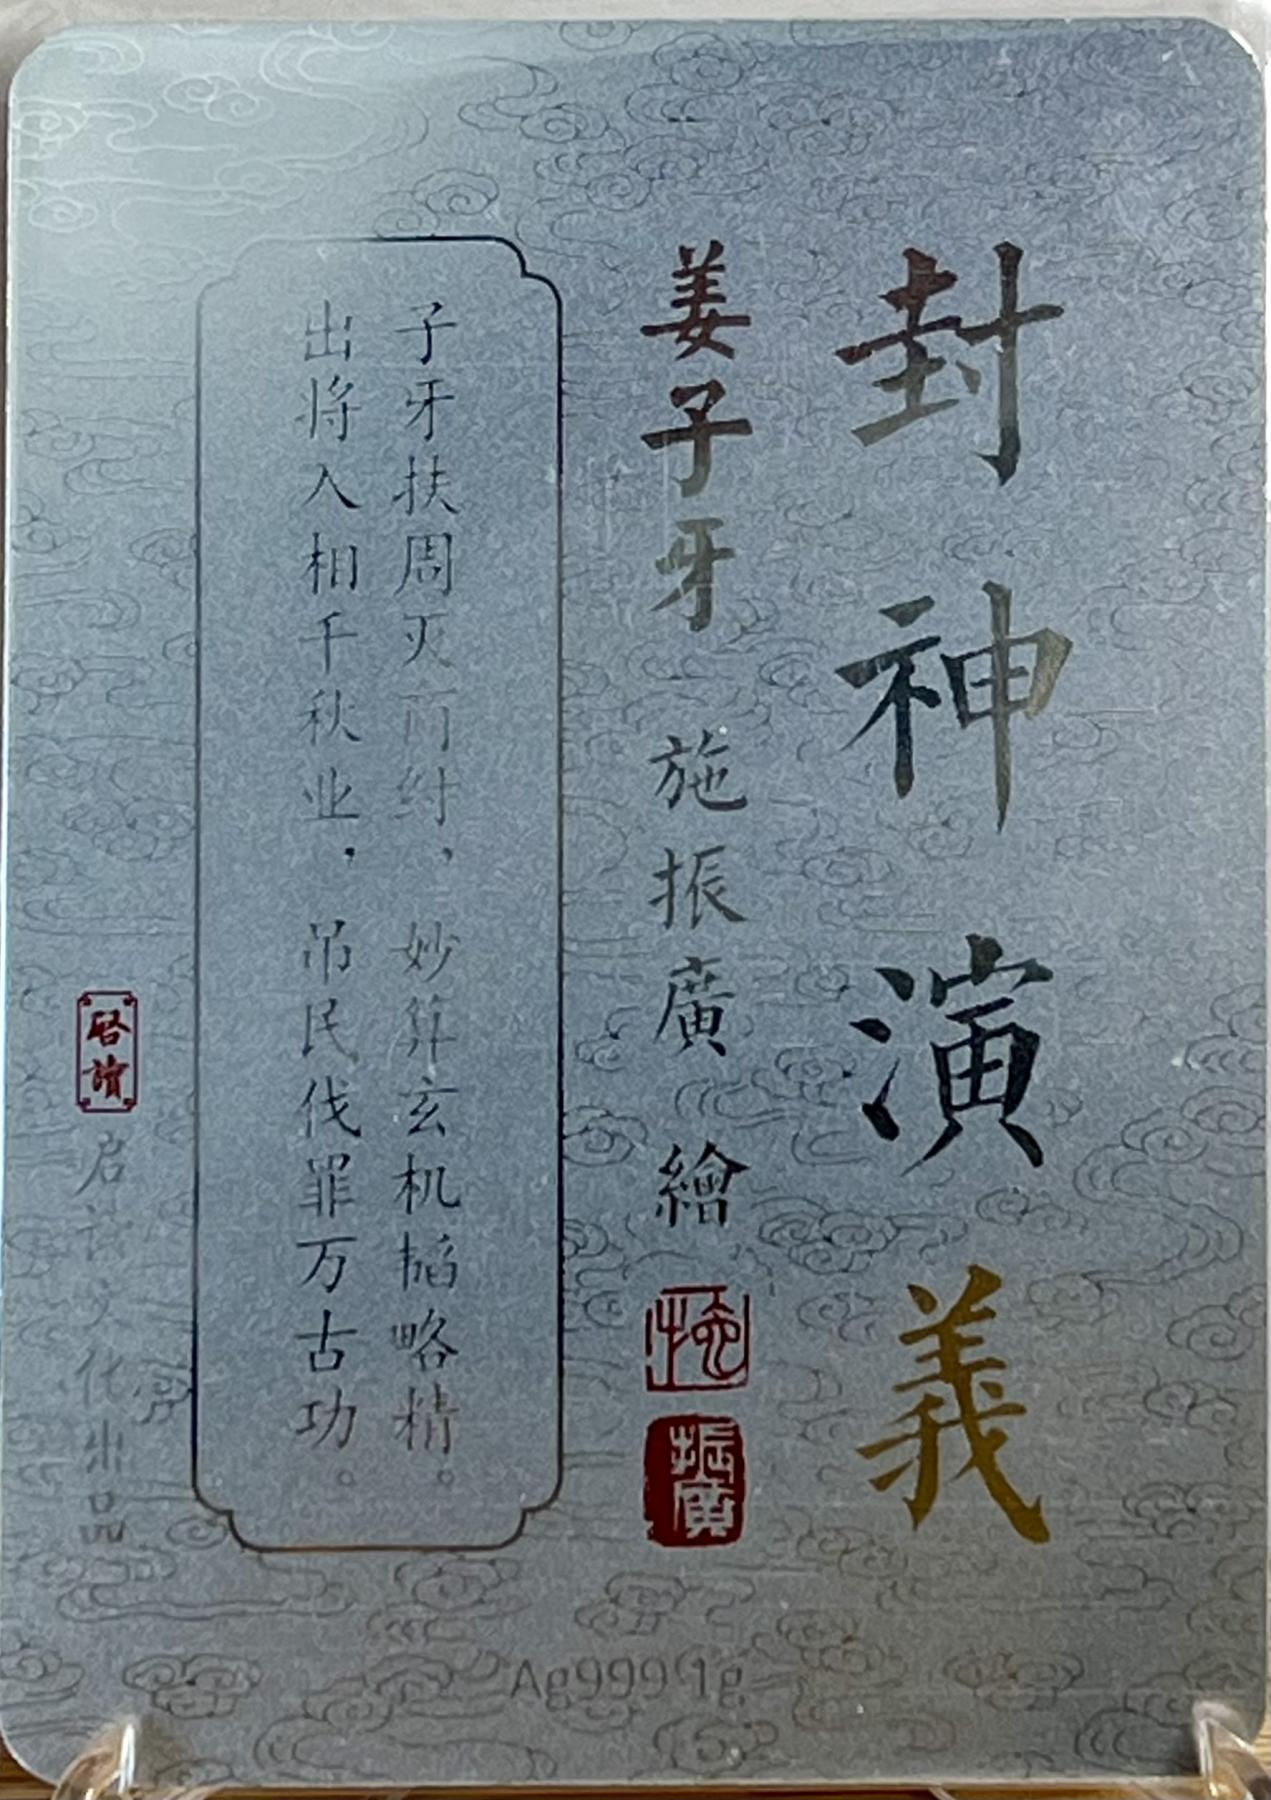 封神演義
姜子牙 施振廣 繪
施
振廣
子牙扶周灭商纣，妙算玄机韬略精。
出将入相千秋业，吊民伐罪万古功。
啓讀
启读文化出品
Ag999 1g